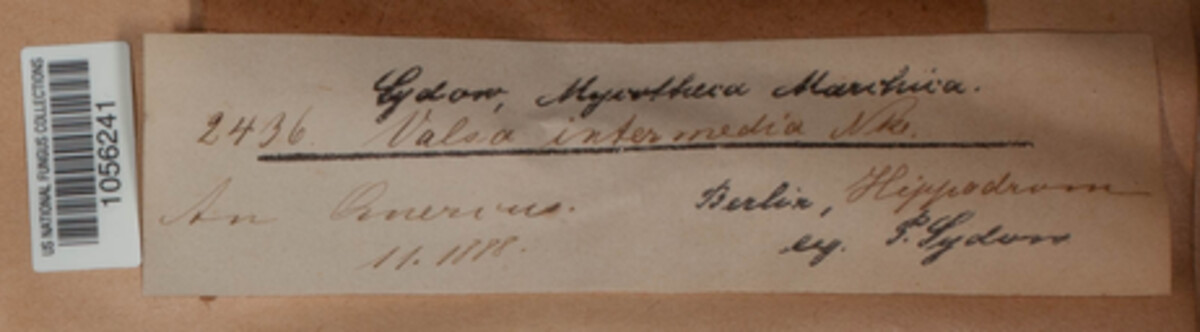 US NATIONAL FUNGUS COLLECTIONS
1056241
Sydow, Mycotheca Marchica.
2436. Valsa intermedia Nke.
An Quercus. Berlin, Hippodrom
11.1888. leg. P. Sydow